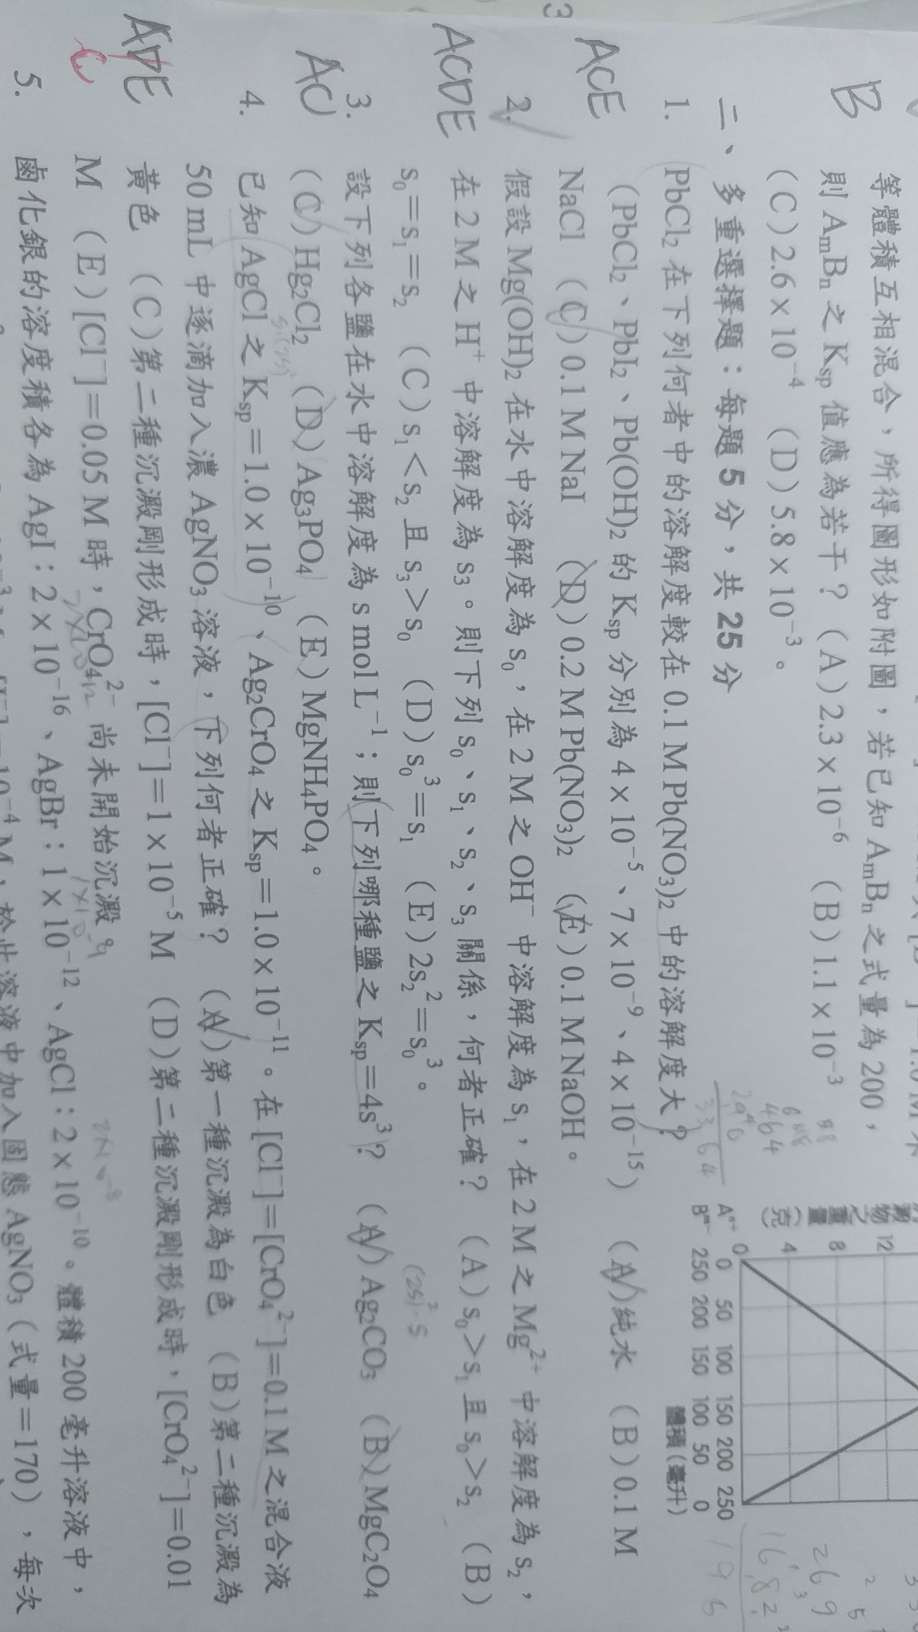 等體積互相混合，所得圖形如附圖，若已知 AmBn 之式量為 200，
B 則 AmBn 之 Ksp 值應為若干？（A）2.3 × 10⁻⁶ （B）1.1 × 10⁻³
（C）2.6 × 10⁻⁴ （D）5.8 × 10⁻³。
12
8
4
0
量 （克）
Aⁿ⁺ 0 50 100 150 200 250
Bᵐ⁻ 250 200 150 100 50 0
體積（毫升）
二、多重選擇題：每題 5 分，共 25 分
ACE 1. PbCl₂ 在下列何者中的溶解度較在 0.1 M Pb(NO₃)₂ 中的溶解度大？
（PbCl₂、PbI₂、Pb(OH)₂ 的 Ksp 分別為 4 × 10⁻⁵、7 × 10⁻⁹、4 × 10⁻¹⁵）（A）純水 （B）0.1 M
NaCl （C）0.1 M NaI （D）0.2 M Pb(NO₃)₂ （E）0.1 M NaOH。
ACDE 2. 假設 Mg(OH)₂ 在水中溶解度為 s₀，在 2 M 之 OH⁻ 中溶解度為 s₁，在 2 M 之 Mg²⁺ 中溶解度為 s₂，
在 2 M 之 H⁺ 中溶解度為 s₃。則下列 s₀、s₁、s₂、s₃ 關係，何者正確？（A）s₀＞s₁ 且 s₀＞s₂ （B）
s₀＝s₁＝s₂ （C）s₁＜s₂ 且 s₃＞s₀ （D）s₀³＝s₁ （E）2s₂²＝s₀³。
AC 3. 設下列各鹽在水中溶解度為 s mol L⁻¹；則下列哪種鹽之 Ksp＝4s³？（A）Ag₂CO₃ （B）MgC₂O₄
（C）Hg₂Cl₂ （D）Ag₃PO₄ （E）MgNH₄PO₄。
ADE 4. 已知 AgCl 之 Ksp＝1.0 × 10⁻¹⁰、Ag₂CrO₄ 之 Ksp＝1.0 × 10⁻¹¹。在 [Cl⁻]＝[CrO₄²⁻]＝0.1 M 之混合液
50 mL 中逐滴加入濃 AgNO₃ 溶液，下列何者正確？（A）第一種沉澱為白色 （B）第二種沉澱為
黃色 （C）第二種沉澱剛形成時，[Cl⁻]＝1 × 10⁻⁵ M （D）第二種沉澱剛形成時，[CrO₄²⁻]＝0.01
M （E）[Cl⁻]＝0.05 M 時，CrO₄²⁻ 尚未開始沉澱。
5. 鹵化銀的溶度積各為 AgI：2 × 10⁻¹⁶、AgBr：1 × 10⁻¹²、AgCl：2 × 10⁻¹⁰。體積 200 毫升溶液中，
10⁻⁴ M，於此溶液中加入固態 AgNO₃（式量＝170），每次